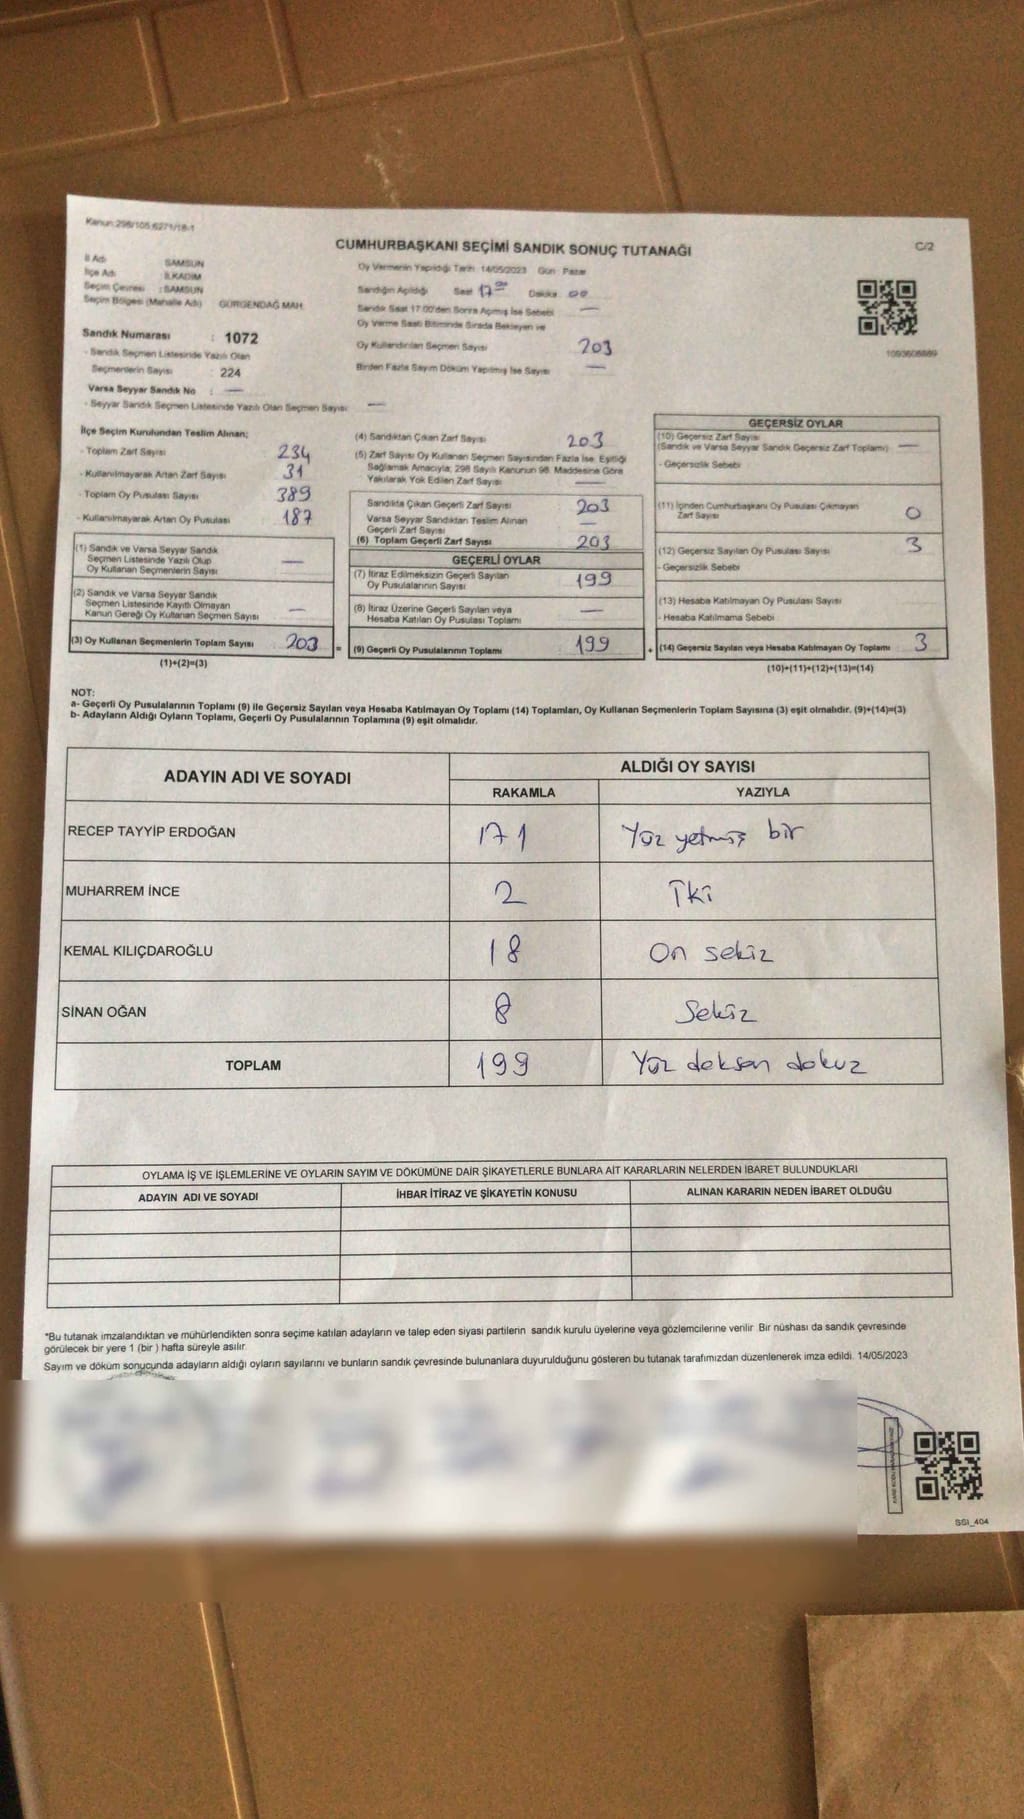 Kanun:298/105,6271/18-1
CUMHURBAŞKANI SEÇİMİ SANDIK SONUÇ TUTANAĞI
C/2
İl Adı : SAMSUN
İlçe Adı : İLKADIM
Seçim Çevresi : SAMSUN
Seçim Bölgesi (Mahalle Adı) : GÜRGENDAĞ MAH.
Sandık Numarası : 1072
- Sandık Seçmen Listesinde Yazılı Olan
Seçmenlerin Sayısı : 224
Varsa Seyyar Sandık No : —
- Seyyar Sandık Seçmen Listesinde Yazılı Olan Seçmen Sayısı : —
Oy Vermenin Yapıldığı Tarih 14/05/2023 Gün Pazar
Sandığın Açıldığı Saat 17⁰⁰ Dakika 00
Sandık Saat 17:00'den Sonra Açılmış İse Sebebi —
Oy Verme Saati Bitiminde Sırada Bekleyen ve
Oy Kullandırılan Seçmen Sayısı 203
Birden Fazla Sayım Döküm Yapılmış İse Sayısı —
İlçe Seçim Kurulundan Teslim Alınan;
- Toplam Zarf Sayısı 234
- Kullanılmayarak Artan Zarf Sayısı 31
- Toplam Oy Pusulası Sayısı 389
- Kullanılmayarak Artan Oy Pusulası 187
(1) Sandık ve Varsa Seyyar Sandık
Seçmen Listesinde Yazılı Olup
Oy Kullanan Seçmenlerin Sayısı —
(2) Sandık ve Varsa Seyyar Sandık
Seçmen Listesinde Kayıtlı Olmayan
Kanun Gereği Oy Kullanan Seçmen Sayısı —
(3) Oy Kullanan Seçmenlerin Toplam Sayısı 203 =
(1)+(2)=(3)
(4) Sandıktan Çıkan Zarf Sayısı 203
(5) Zarf Sayısı Oy Kullanan Seçmen Sayısından Fazla İse, Eşitliği
Sağlamak Amacıyla, 298 Sayılı Kanunun 98. Maddesine Göre
Yakılarak Yok Edilen Zarf Sayısı —
Sandıkta Çıkan Geçerli Zarf Sayısı 203
Varsa Seyyar Sandıktan Teslim Alınan
Geçerli Zarf Sayısı —
(6) Toplam Geçerli Zarf Sayısı 203
GEÇERLİ OYLAR
(7) İtiraz Edilmeksizin Geçerli Sayılan
Oy Pusulalarının Sayısı 199
(8) İtiraz Üzerine Geçerli Sayılan veya
Hesaba Katılan Oy Pusulası Toplamı —
(9) Geçerli Oy Pusulalarının Toplamı 199 +
GEÇERSİZ OYLAR
(10) Geçersiz Zarf Sayısı
(Sandık ve Varsa Seyyar Sandık Geçersiz Zarf Toplamı) —
- Geçersizlik Sebebi
(11) İçinden Cumhurbaşkanı Oy Pusulası Çıkmayan
Zarf Sayısı 0
(12) Geçersiz Sayılan Oy Pusulası Sayısı 3
- Geçersizlik Sebebi
(13) Hesaba Katılmayan Oy Pusulası Sayısı
- Hesaba Katılmama Sebebi
(14) Geçersiz Sayılan veya Hesaba Katılmayan Oy Toplamı 3
(10)+(11)+(12)+(13)=(14)
NOT:
a- Geçerli Oy Pusulalarının Toplamı (9) ile Geçersiz Sayılan veya Hesaba Katılmayan Oy Toplamı (14) Toplamları, Oy Kullanan Seçmenlerin Toplam Sayısına (3) eşit olmalıdır. (9)+(14)=(3)
b- Adayların Aldığı Oyların Toplamı, Geçerli Oy Pusulalarının Toplamına (9) eşit olmalıdır.
ADAYIN ADI VE SOYADI
ALDIĞI OY SAYISI
RAKAMLA YAZIYLA
RECEP TAYYİP ERDOĞAN 171 Yüz yetmiş bir
MUHARREM İNCE 2 İki
KEMAL KILIÇDAROĞLU 18 On sekiz
SİNAN OĞAN 8 Sekiz
TOPLAM 199 Yüz doksan dokuz
OYLAMA İŞ VE İŞLEMLERİNE VE OYLARIN SAYIM VE DÖKÜMÜNE DAİR ŞİKAYETLERLE BUNLARA AİT KARARLARIN NELERDEN İBARET BULUNDUKLARI
ADAYIN ADI VE SOYADI İHBAR İTİRAZ VE ŞİKAYETİN KONUSU ALINAN KARARIN NEDEN İBARET OLDUĞU
*Bu tutanak imzalandıktan ve mühürlendikten sonra seçime katılan adayların ve talep eden siyasi partilerin sandık kurulu üyelerine veya gözlemcilerine verilir. Bir nüshası da sandık çevresinde
görülecek bir yere 1 (bir ) hafta süreyle asılır.
Sayım ve döküm sonucunda adayların aldığı oyların sayılarını ve bunların sandık çevresinde bulunanlara duyurulduğunu gösteren bu tutanak tarafımızdan düzenlenerek imza edildi. 14/05/2023
SSI_404